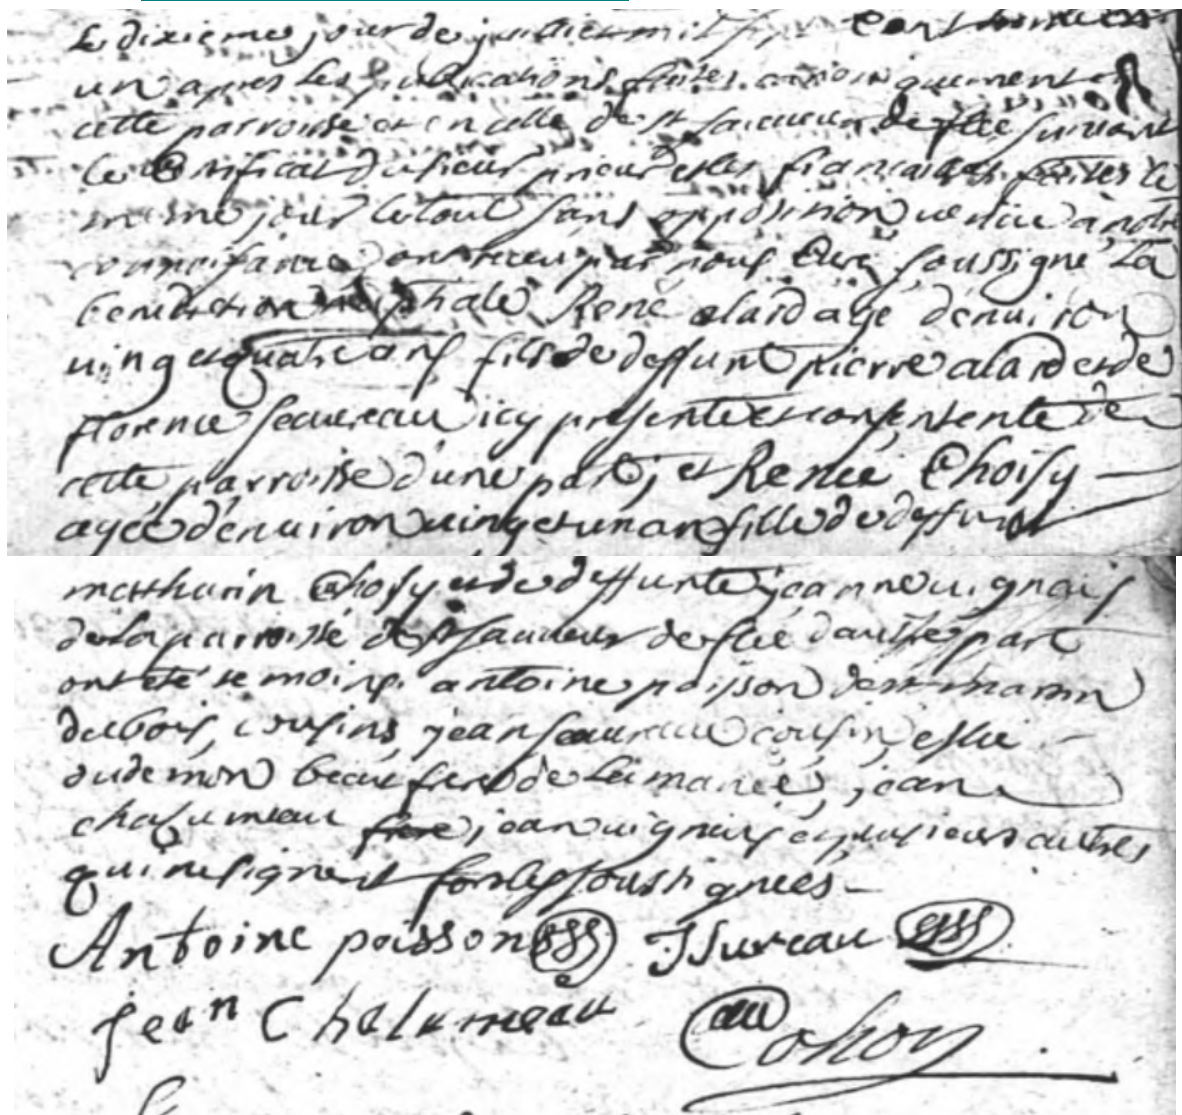 le dixieme jour de juillet mil sept cent
un apres les publications faites canoniquement en
cette parroisse et en celle de st sauveur de flée suivant
le Certificat du sieur prieur et les fiancailles faites le
mesme jour le tout sans opposition venue a notre
connoissance ont receu par nous Curé soussigné La
benediction nuptiale René alard agé d'environ
vingt et quatre ans fils de deffunt pierre alard et de
florence seaureau icy presente et consentente de
cette parroisse d'une part, et Renée Choisy
agée d'environ vingt et un an fille de deffunt
mathurin Choisy et de deffunte jeanne vignais
de la parroisse de st sauveur de flée d'autre part
ont eté temoins antoine poisson et marin
dubois, cousins, jean seaureau cousin,
beau frere de la mariée, jean
chalumeau jean vignais et plusieurs autres
qui ne signent fors les soussignées
Antoine poisson JSureau
jean Chalumeau Cohon